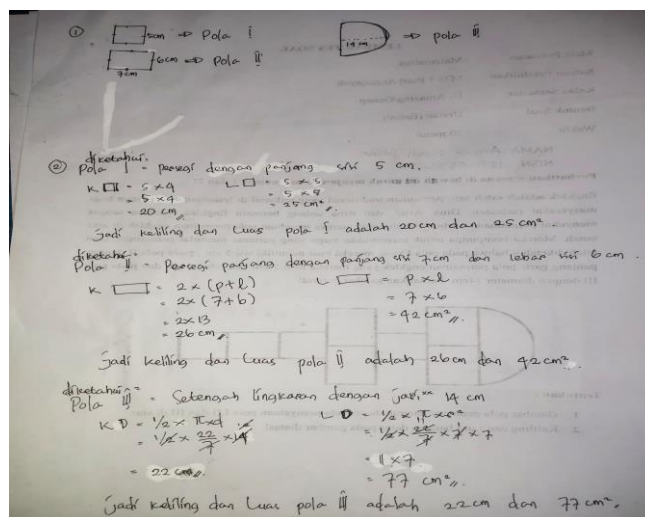 ① 5cm ⇒ Pola I
14 cm ⇒ pola III
6cm ⇒ Pola II
7cm
diketahui:
② Pola I = persegi dengan panjang sisi 5 cm.
K □ = 5 x 4
= 5 x 4
= 20 cm
L □ = 5 x 5
= 5 x 5
= 25 cm²
Jadi keliling dan Luas pola I adalah 20 cm dan 25 cm².
diketahui:
Pola II = Persegi panjang dengan panjang sisi 7 cm dan lebar sisi 6 cm.
K ▭ = 2 x (p+l)
= 2x (7+6)
= 2x13
= 26 cm
L ▭ = p x l
= 7 x 6
= 42 cm²
Jadi keliling dan Luas pola II adalah 26 cm dan 42 cm².
diketahui =
Pola III = Setengah lingkaran dengan jari" 14 cm
K D = 1/2 x π x d
= 1/2 x 22/7 x 14
= 22 cm
L D = 1/2 x π x r²
= 1/2 x 22/7 x 7 x 7
= 11 x 7
= 77 cm²
Jadi keliling dan Luas pola III adalah 22 cm dan 77 cm².